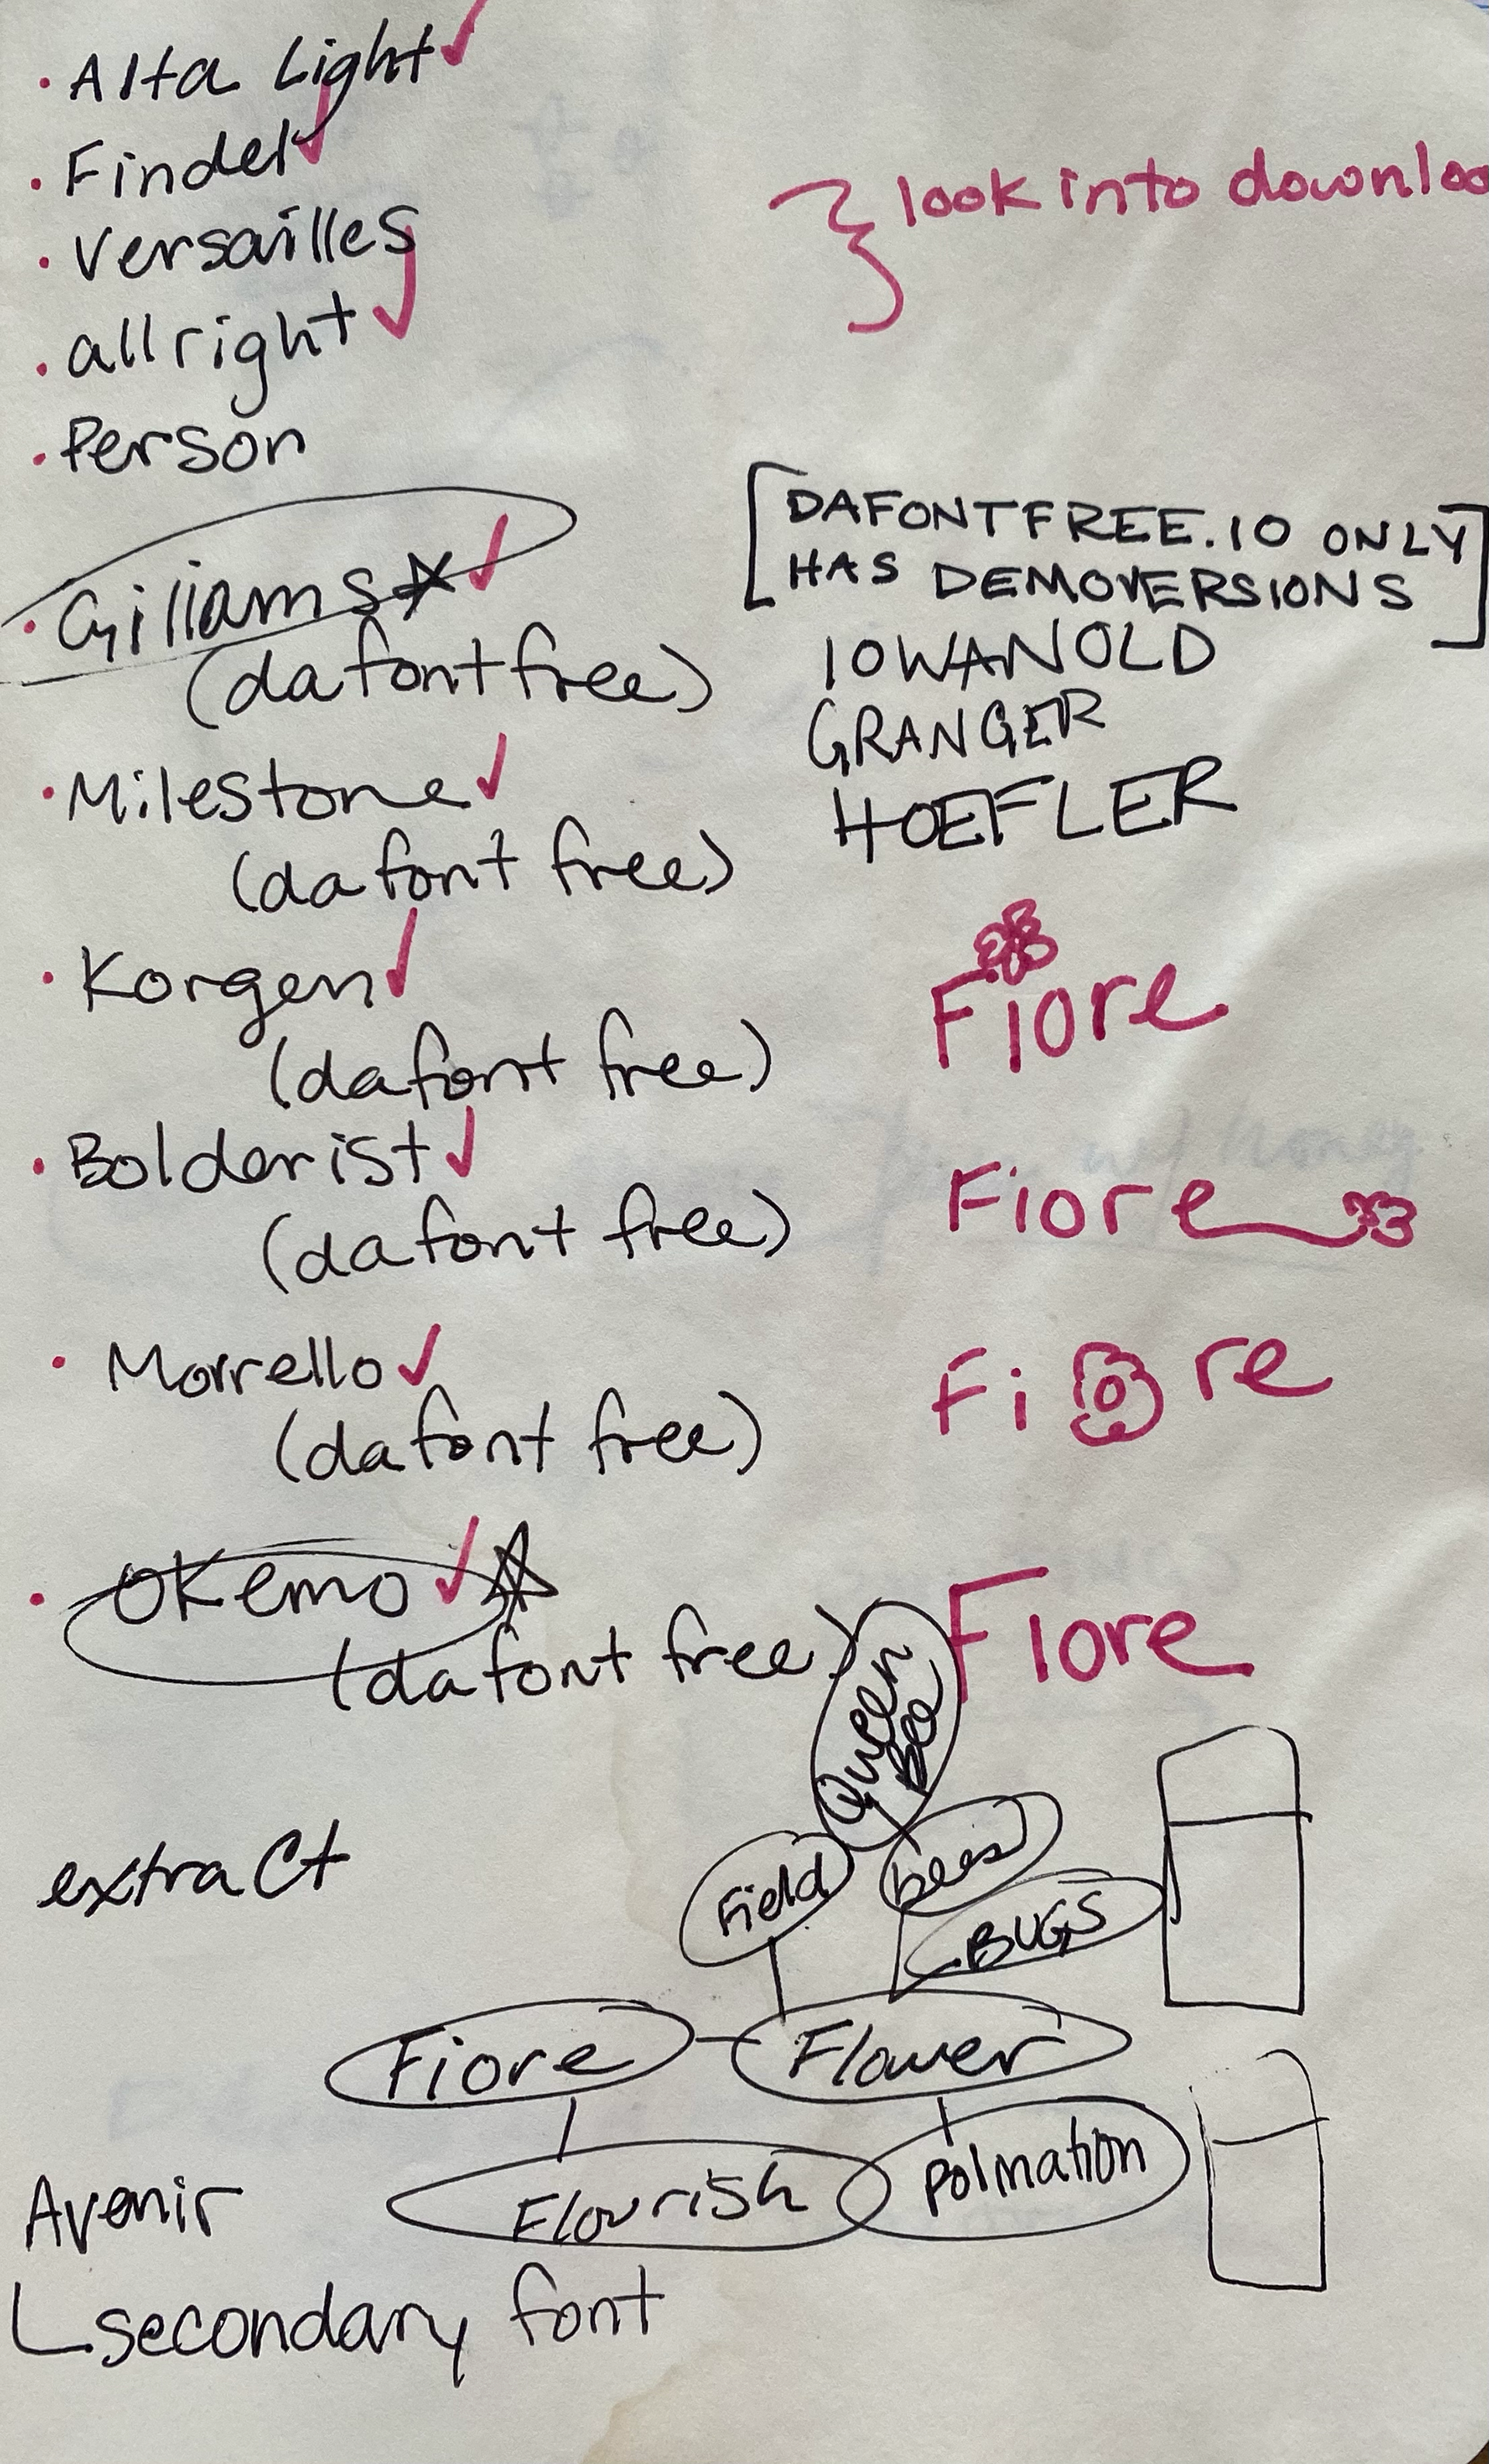 Alta Light
Findel
Versailles
allright
Person
look into downloa
Gilliams
(dafont free)
Milestone
(dafont free)
Korgen
(dafont free)
Bolderist
(dafont free)
Morrello
(dafont free)
Okemo
(dafont free)
[DAFONTFREE.IO ONLY
HAS DEMOVERSIONS]
IOWANOLD
GRANGER
HOEFLER
Fiore
Fiore
Fiore
Fiore
Queen
Bee
extract
Field
bees
BUGS
Fiore
Flower
Flourish
polination
Avenir
secondary font